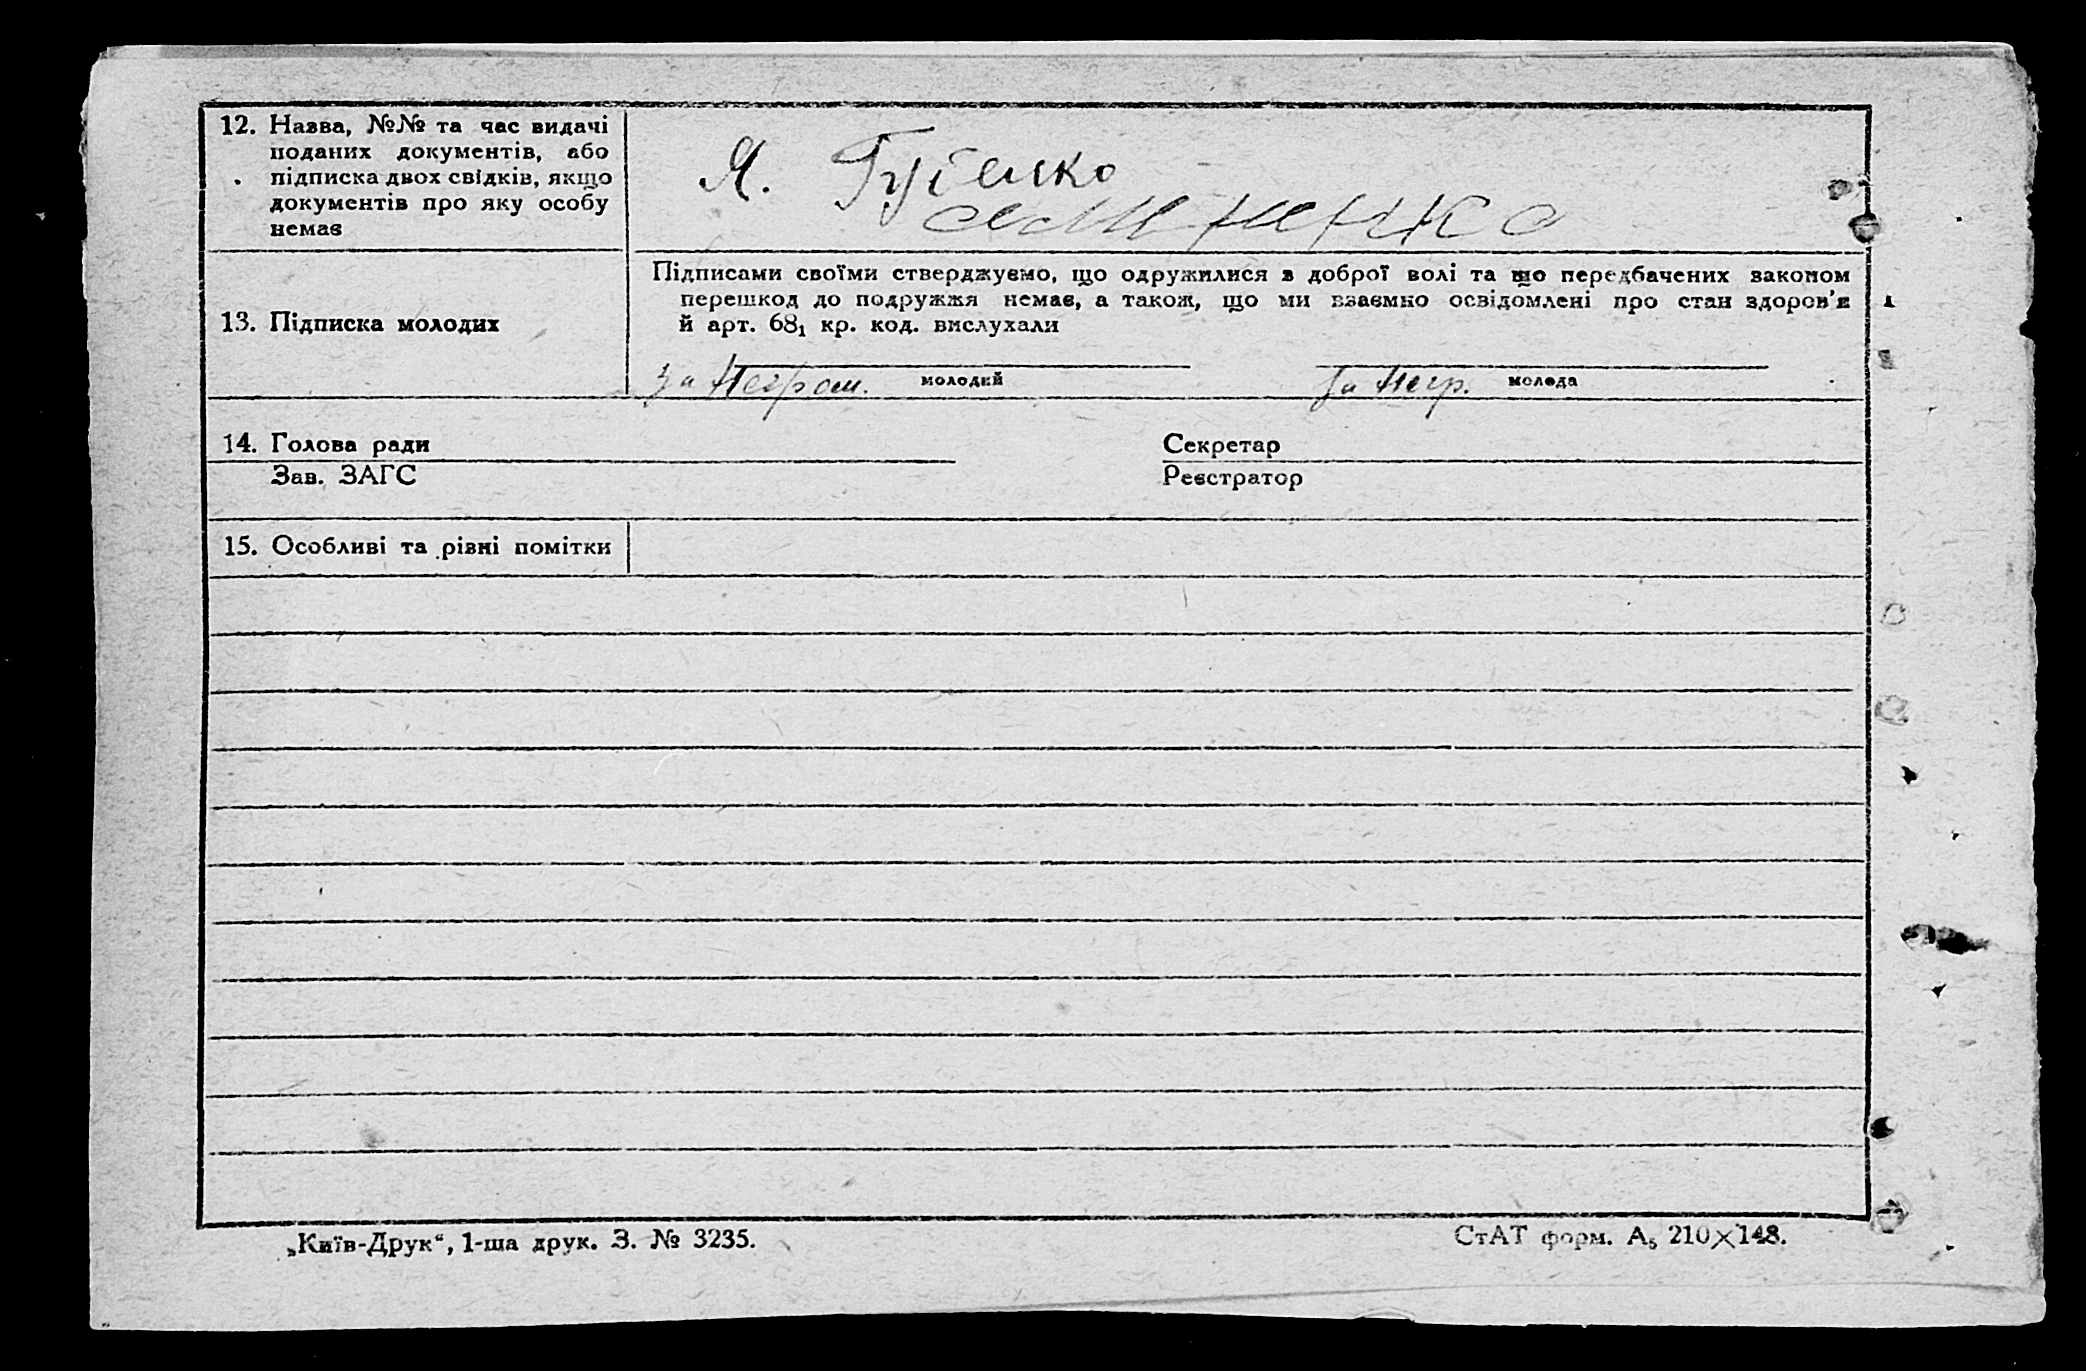 12. Назва, №№ та час видачі
поданих документів, або
підписка двох свідків, якщо
документів про яку особу
немає
Я.
Підписами своїми стверджуємо, що одружилися з доброї волі та що передбачених законом
перешкод до подружжя немає, а також, що ми взаємно освідомлені про стан здоров'я
й арт. 68₁ кр. код. вислухали
13. Підписка молодих
За Неграм. молодий
За Негр. молода
14. Голова ради
Секретар
Зав. ЗАГС
Реєстратор
15. Особливі та різні помітки
„Київ-Друк“, 1-ша друк. З. № 3235.
СтАТ форм. А₅ 210×148.